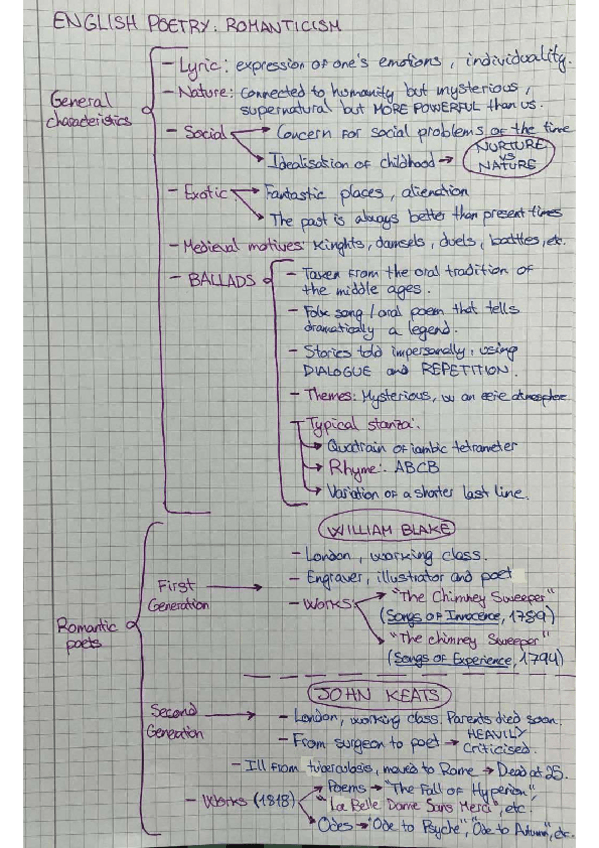 ENGLISH POETRY: ROMANTICISM
General characteristics
- Lyric: expression of one's emotions, individuality.
- Nature: Connected to humanity but mysterious,
supernatural but MORE POWERFUL than us.
- Social → Concern for social problems of the time
→ Idealisation of childhood → NURTURE
VS
NATURE
- Exotic → Fantastic places, alienation
→ The past is always better than present times
- Medieval motives: Kinghts, damsels, duels, battles, etc.
- BALLADS
- Taken from the oral tradition of
the middle ages.
- Folk song / oral poem that tells
dramatically a legend.
- Stories told impersonally, using
DIALOGUE and REPETITION.
- Themes: Mysterious, w an eerie atmosphere
- Typical stanza:
→ Quatrain of iambic tetrameter
→ Rhyme: ABCB
→ Variation of a shorter last line.
Romantic
poets
First
Generation →
WILLIAM BLAKE
- London, working class.
- Engraver, illustrator and poet
- Works: → "The Chimney Sweeper"
(Songs of Innocence, 1789)
→ "The chimney Sweeper"
(Songs of Experience, 1794)
Second
Generation →
JOHN KEATS
- London, working class. Parents died soon.
- From surgeon to poet → HEAVILY
Criticised.
- Ill from tuberculosis, moved to Rome → Dead at 25.
- Works (1818) → Poems → "The Fall of Hyperion",
"La Belle Dame Sans Merci", etc.
→ Odes → "Ode to Psyche", "Ode to Autumn", etc.